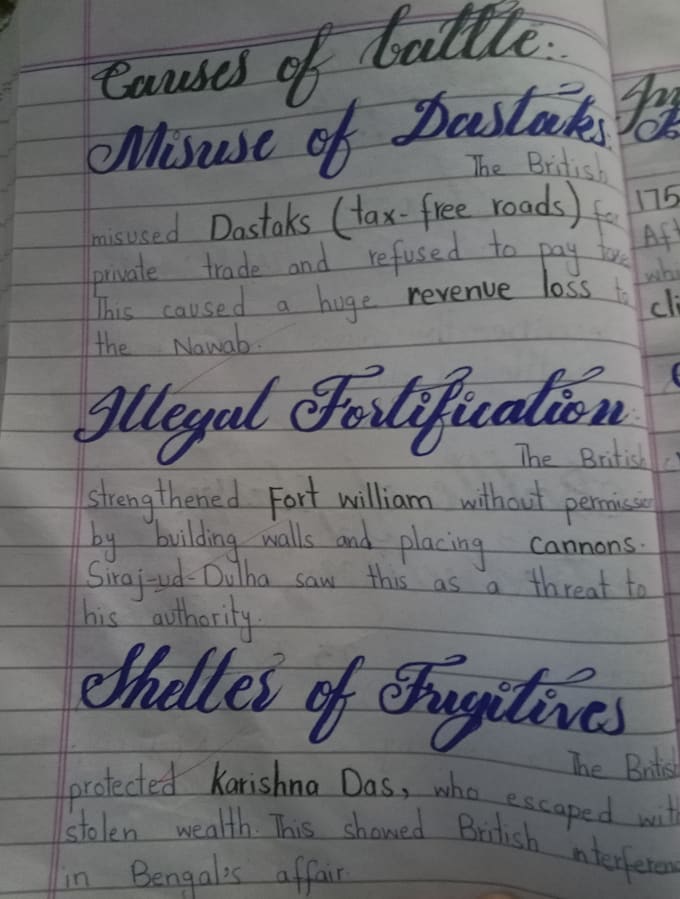 Causes of battle:
Misuse of Dastaks:
The British
misused Dastaks (tax-free roads) for
private trade and refused to pay
This caused a huge revenue loss to
the Nawab.
Illegal Fortification:
The British
strengthened Fort william without permission
by building walls and placing cannons.
Siraj-ud-Dulha saw this as a threat to
his authority.
Shelter of Fugitives
The British
protected Karishna Das, who escaped with
stolen wealth. This showed British interference
in Bengal's affair.
175
Aft
whi
cli